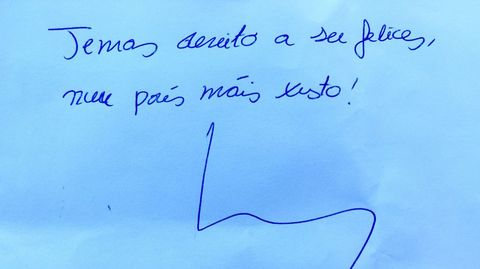 Temos dereito a ser felices,
nun país máis xusto!